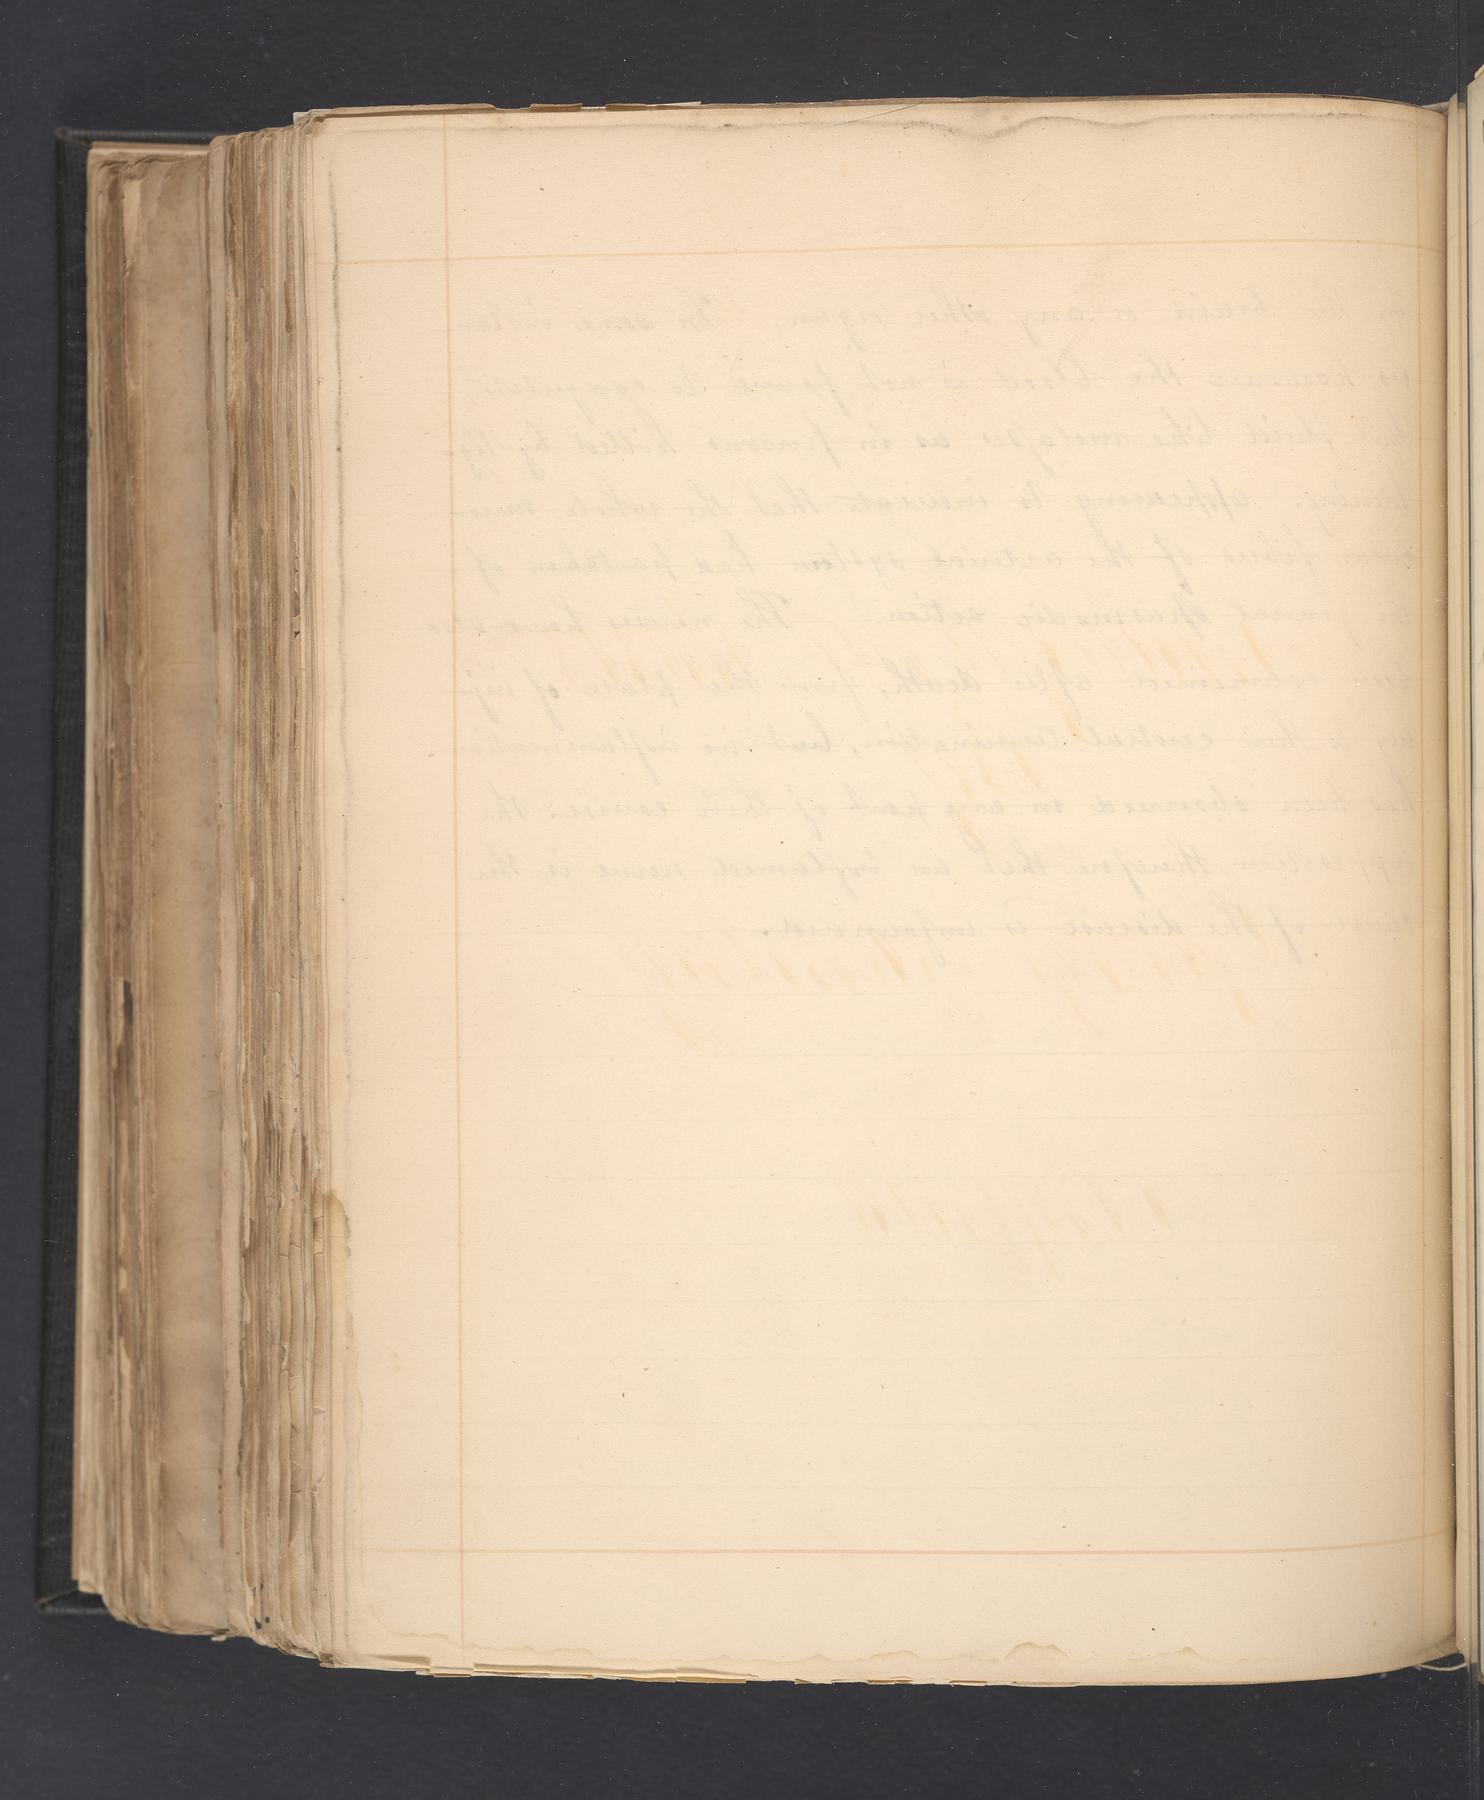 in the brain or any other organ. In some instan-
the blood is not found to coagulate,
but fluid like molasses as in persons killed by lig-
tening, appearing to indicate that the whole mus-
fibres of the arterial system had partaken of
the general spasmodic action. The nerves have also
been examined after death, from the place of inj-
ury to their central termination, but no inflammation
has been observed in any part of their course: the
supposition therefore that an inflamed nerve is the
cause of the disease is unfounded.